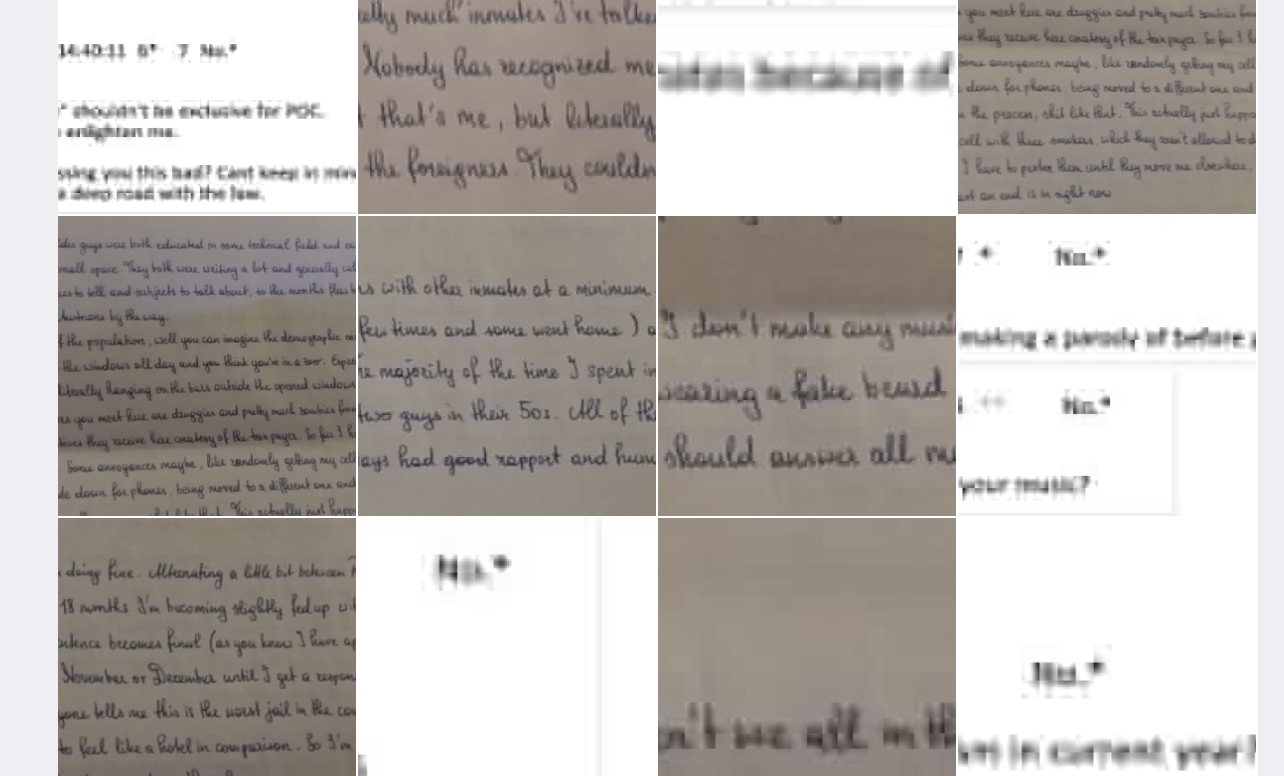 14:40:11 6* 7 No.*
" shouldn't be exclusive for POC.
enlighten me.
ssing you this bad? Cant keep in min
a deep road with the law.
etty much inmates I've talke
Nobody has recognized me
that's me, but literally
the foreigness. They couldn
mates because of
you meet here are druggies and pretty much zombies from
ves they receive here courtesy of the tax payer. So far I h
Some annoyances maybe, like randomly getting my cell
down for phones, being moved to a different one and
the process, shit like that. This actually just happe
cell with three smokers, which they aren't allowed to d
I have to pester them until they move me elsewhere.
ort an end is in right now.
older guys were both educated in some technical field and
small space. They both were writing a lot and generally
to tell and subjects to talk about, so the months flew
Austrians by the way.
f the population, well you can imagine the demographic
the windows all day and you think you're in a zoo.
literally hanging on the bars outside the opened windows
you meet here are druggies and pretty much zombies from
tives they receive here courtesy of the tax payer. So far I h
Some annoyances maybe, like randomly getting my cell
de down for phones, being moved to a different one and
shit like that. This actually just happe
s with other inmates at a minimum.
few times and some went home) a
e majority of the time I spent in
two guys in their 50s. All of th
ays had good rapport and hum
I don't make any musi
wearing a fake beard
should answer all
* No.*
making a parody of before
No.*
your music?
doing fine. Alternating a little bit between
18 months I'm becoming slightly fed up wit
entence becomes final (as you know I have ap
November or December until I get a respon
yone tells me this is the worst jail in the cou
to feel like a hotel in comparison. So I'm
No.*
n't we all in th
No.*
in current year?